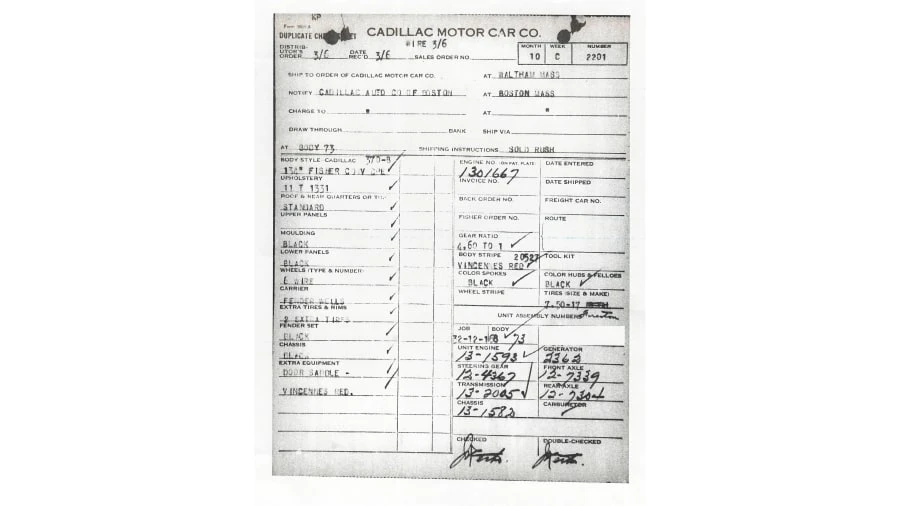 KP
DUPLICATE
CADILLAC MOTOR CAR CO.
WIRE 3/6
DISTRIBUTOR'S ORDER 3/6 DATE REC'D 3/6 SALES ORDER NO.
MONTH WEEK NUMBER
10 C 2201
SHIP TO ORDER OF CADILLAC MOTOR CAR CO. AT WALTHAM MASS
NOTIFY CADILLAC AUTO CO OF BOSTON AT BOSTON MASS
CHARGE TO " AT "
DRAW THROUGH BANK SHIP VIA
AT BODY 73 SHIPPING INSTRUCTIONS SOLD RUSH
BODY STYLE CADILLAC 370-B
134" FISHER CONV CPE
UPHOLSTERY
11 T 1331
ROOF & REAR QUARTERS OR
STANDARD
UPPER PANELS
MOULDING
BLACK
LOWER PANELS
BLACK
WHEELS (TYPE & NUMBER)
6 WIRE
CARRIER
FENDER WELLS
EXTRA TIRES & RIMS
2 EXTRA TIRES
FENDER SET
BLACK
CHASSIS
BLACK
EXTRA EQUIPMENT
DOOR SADDLE -
VINCENNES RED.
ENGINE NO. (ON PAT. PLATE)
1301667
INVOICE NO.
BACK ORDER NO.
FISHER ORDER NO.
GEAR RATIO
4.60 TO 1
BODY STRIPE 20527
VINCENNES RED
COLOR SPOKES
BLACK
WHEEL STRIPE
DATE ENTERED
DATE SHIPPED
FREIGHT CAR NO.
ROUTE
TOOL KIT
COLOR HUBS & FELLOES
BLACK
TIRES (SIZE & MAKE)
7.50-17
UNIT ASSEMBLY NUMBERS
JOB BODY
32-12-168 73
UNIT ENGINE
13-1593
STEERING GEAR
12-4367
TRANSMISSION
13-2005
CHASSIS
13-1582
GENERATOR
2362
FRONT AXLE
12-7339
REAR AXLE
12-7304
CARBURETOR
CHECKED DOUBLE-CHECKED